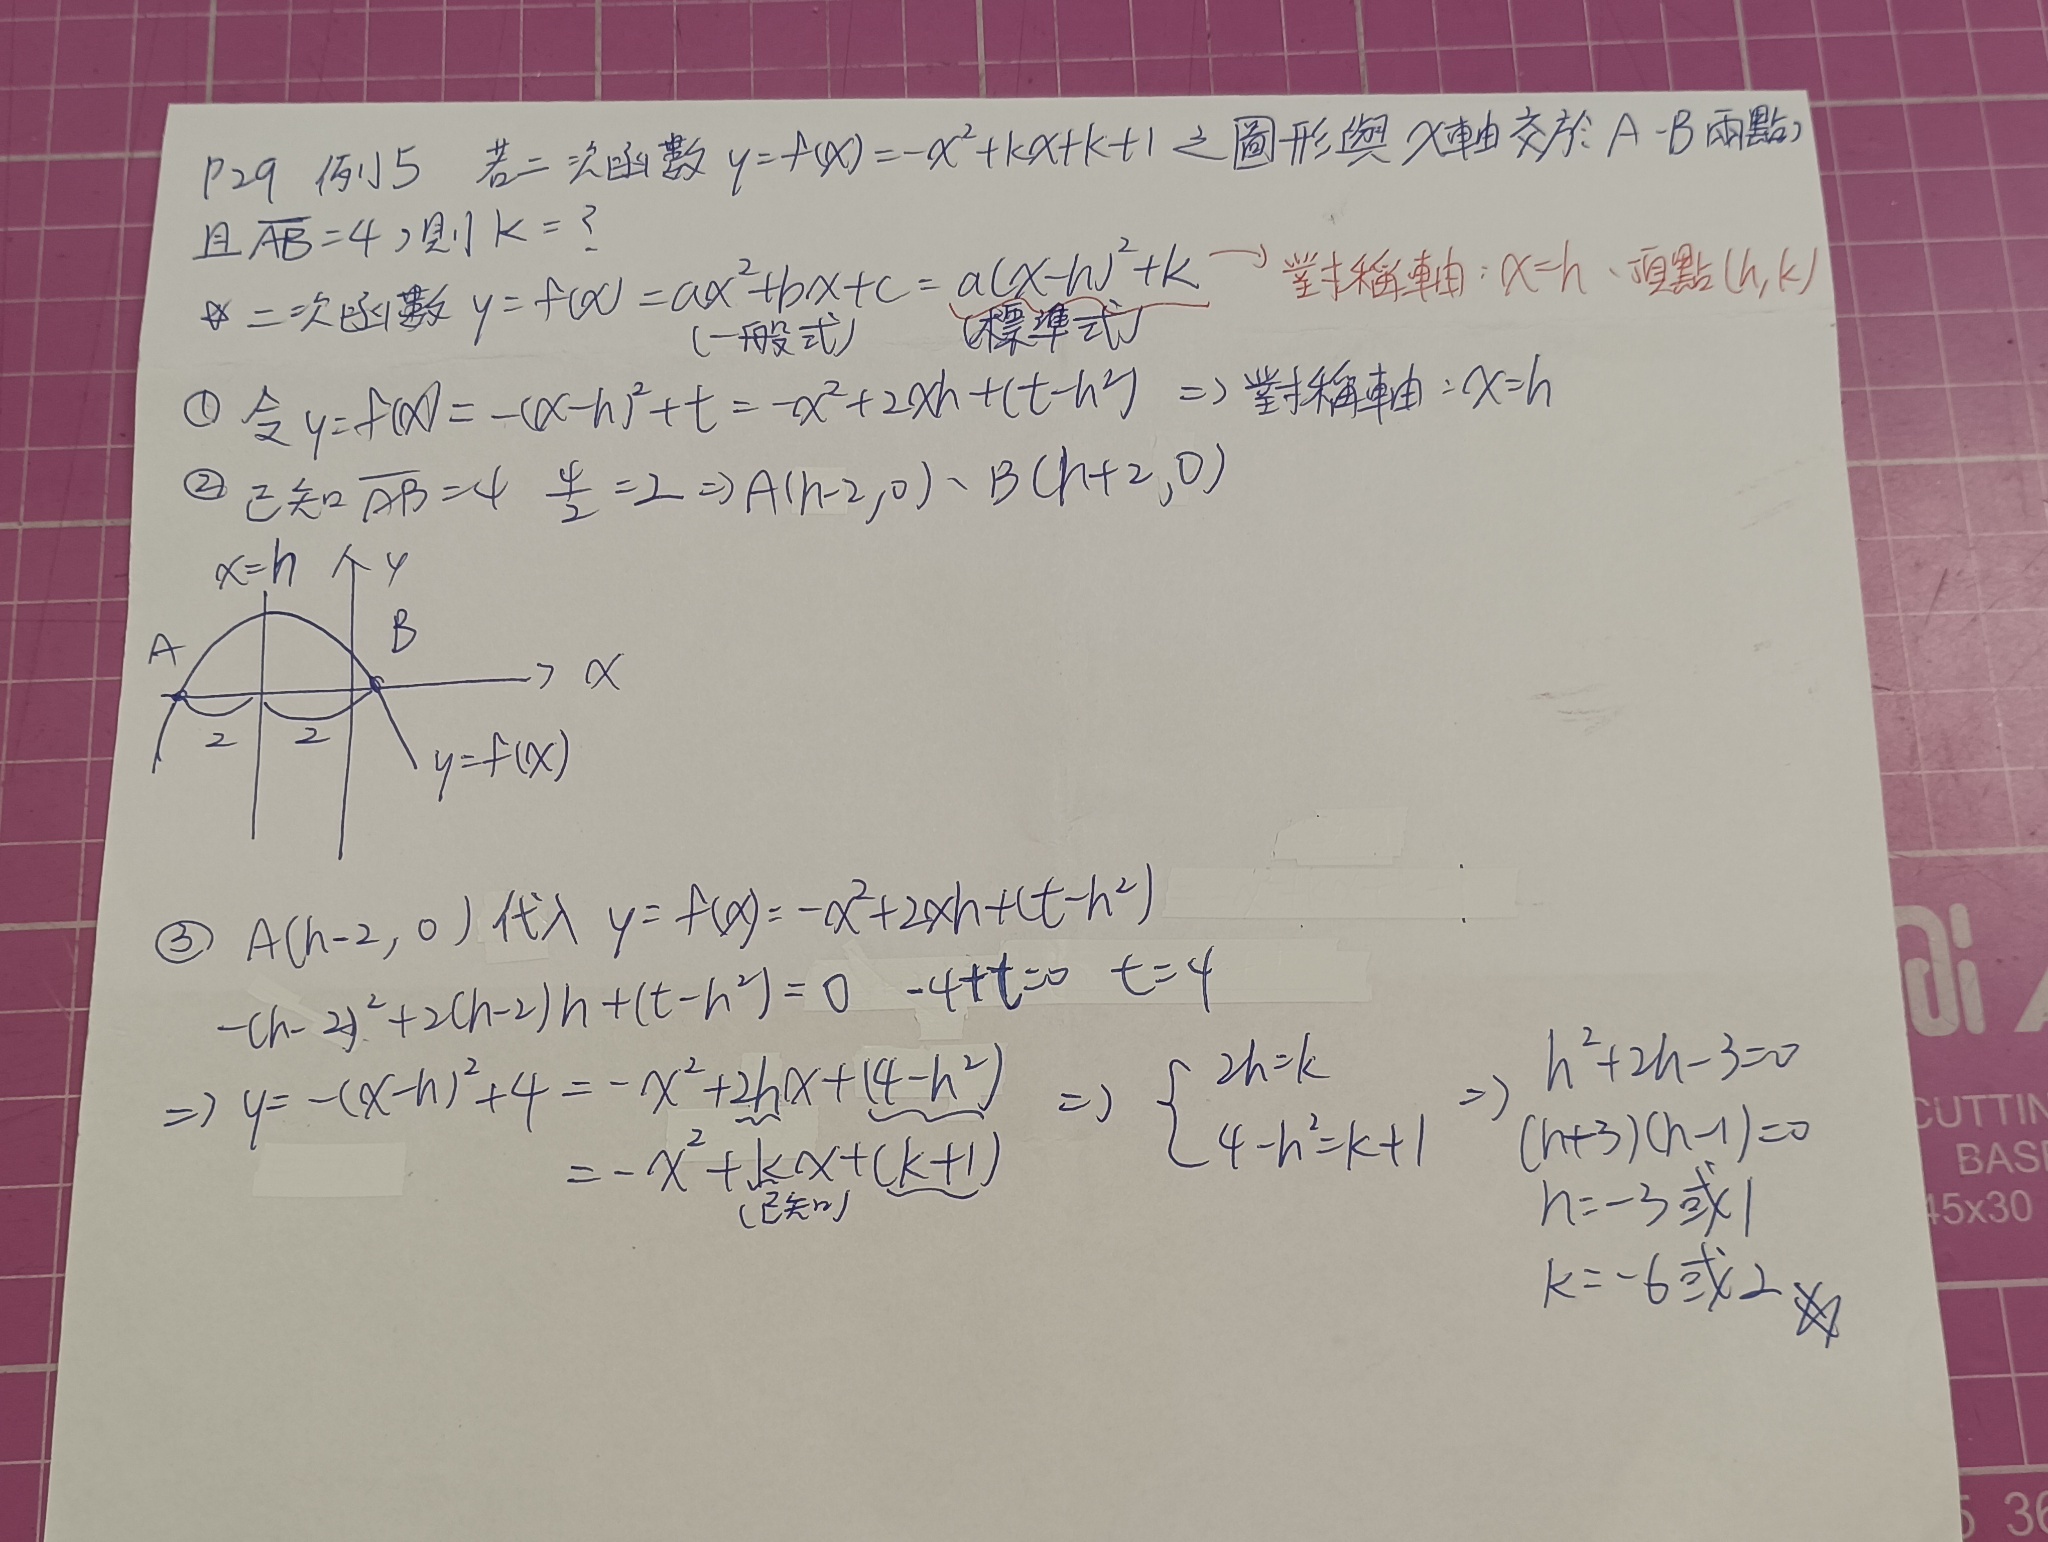 P29 例5 若二次函數 y=f(x)=-x²+kx+k+1 之圖形與 x軸交於 A、B兩點，
且 A̅B̅=4，則 k=?
☆二次函數 y=f(x)=ax²+bx+c=a(x-h)²+k → 對稱軸:x=h、頂點(h,k)
(一般式) (標準式)
① 令 y=f(x)=-(x-h)²+t=-x²+2xh+(t-h²) => 對稱軸:x=h
② 已知 A̅B̅=4 4/2=2 => A(h-2,0)、B(h+2,0)
x=h y
A B
x
2 2
y=f(x)
③ A(h-2,0)代入 y=f(x)=-x²+2xh+(t-h²)
-(h-2)²+2(h-2)h+(t-h²)=0 -4+t=0 t=4
=> y=-(x-h)²+4=-x²+2hx+(4-h²) => { 2h=k => h²+2h-3=0
=-x²+kx+(k+1) 4-h²=k+1 (h+3)(h-1)=0
(已知) h=-3或1
k=-6或2
CUTTIN
BAS
45x30
5 36